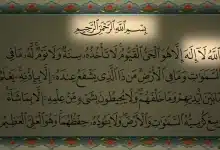 بِسْمِ اللَّهِ الرَّحْمَٰنِ الرَّحِيمِ
اللَّهُ لَا إِلَٰهَ إِلَّا هُوَ الْحَيُّ الْقَيُّومُ لَا تَأْخُذُهُ سِنَةٌ وَلَا نَوْمٌ لَهُ مَا فِي
السَّمَوَاتِ وَمَا فِي الْأَرْضِ مَنْ ذَا الَّذِي يَشْفَعُ عِنْدَهُ إِلَّا بِإِذْنِهِ يَعْلَمُ
مَا بَيْنَ أَيْدِيهِمْ وَمَا خَلْفَهُمْ وَلَا يُحِيطُونَ بِشَيْءٍ مِنْ عِلْمِهِ إِلَّا بِمَا شَاءَ
وَسِعَ كُرْسِيُّهُ السَّمَوَاتِ وَالْأَرْضَ وَلَا يَئُودُهُ حِفْظُهُمَا وَهُوَ الْعَلِيُّ الْعَظِيمُ